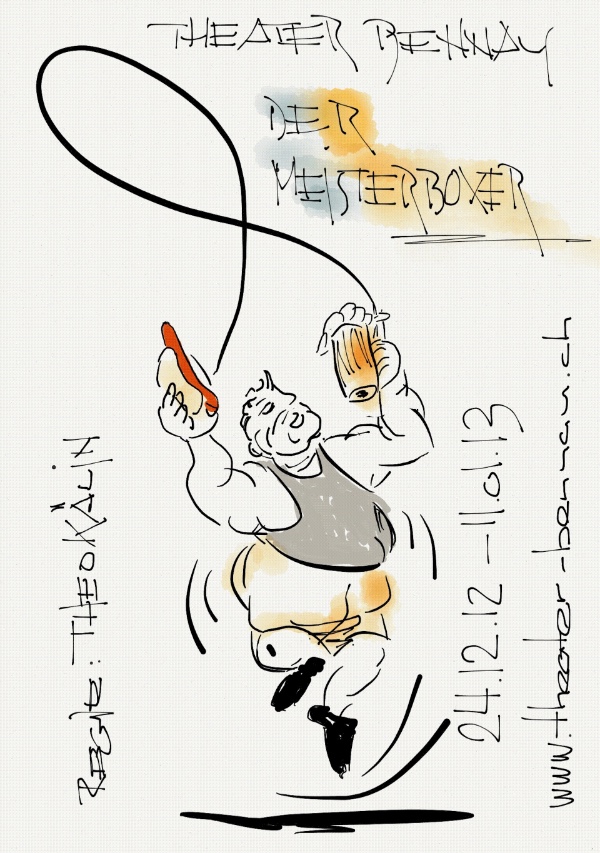 THEATER BENNAU
DER
MEISTERBOXER
REGIE: THEO KÄLIN
24.12.12 – 11.01.13
www.theater-bennau.ch